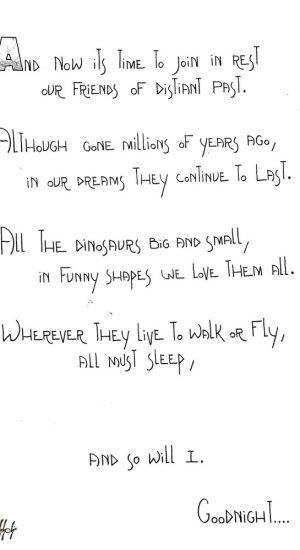 And now its time to join in rest
our friends of distiant past.
Although gone millions of years ago,
in our dreams they continue to last.
All the dinosaurs big and small,
in funny shapes we love them all.
Wherever they live to walk or fly,
all must sleep,
and so will I.
Goodnight....